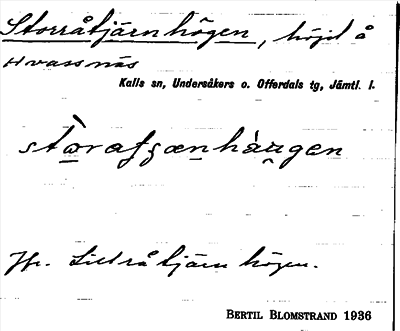 Storråtjärnhögen, höjd å
Hvassnäs
Kalls sn, Undersåkers o. Offerdals tg, Jämtl. l.
Jfr. Lillråtjärnhögen.
BERTIL BLOMSTRAND 1936